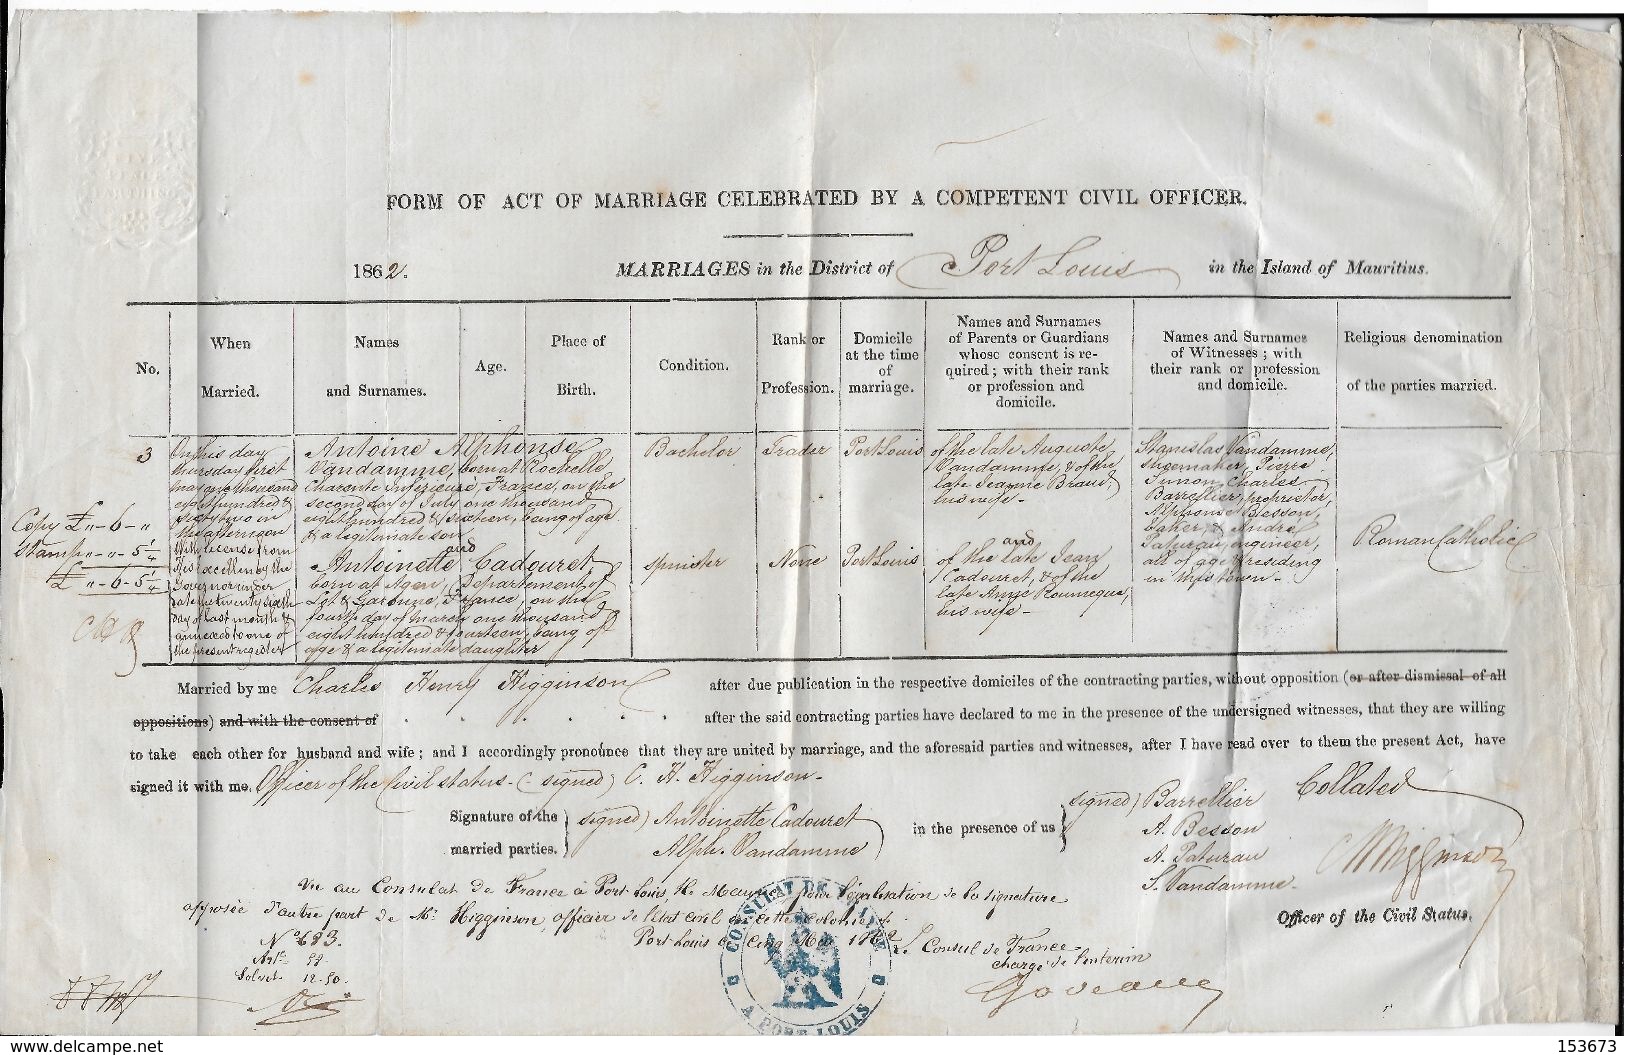 FORM OF ACT OF MARRIAGE CELEBRATED BY A COMPETENT CIVIL OFFICER.
1862. MARRIAGES in the District of Port Louis in the Island of Mauritius.
No.
When
Married.
Names
and Surnames.
Age.
Place of
Birth.
Condition.
Rank or
Profession.
Domicile
at the time
of
marriage.
Names and Surnames
of Parents or Guardians
whose consent is re-
quired; with their rank
or profession and
domicile.
Names and Surnames
of Witnesses; with
their rank or profession
and domicile.
Religious denomination
of the parties married.
3
On this day
thursday first
may one thousand
eight hundred &
sixty two in
the afternoon
With license from
His Excellency the
Governor under
date the twenty sixth
day of last month &
annexed to one of
the present register
Antoine Alphonse
Vandamme, born at Rochelle
Charente Inférieure, France, on the
second day of July one thousand
eight hundred & sixteen, being of age
& a legitimate son
and
Antoinette Cadouret,
born at Agen, Departement of
Lot & Garonne, France, on the
fourth day of March one thousand
eight hundred & fourteen, being of
age & a legitimate daughter
Bachelor
Spinster
Trader
None
Port Louis
Port Louis
of the late Auguste
Vandamme, & of the
late Jeanne Braud,
his wife -
and
of the late Jean
Cadouret, & of the
late Anne Roumeque,
his wife -
Stanislas Vandamme,
shoemaker, Pierre
Simon Charles
Barrellier, proprietor,
Alphonse Besson,
baker, & André
Patureau, engineer,
all of age & residing
in this town -
Roman Catholic
Copy £ " - 6 - "
Stamp " - " - 5 1/4
£ " - 6 - 5 1/4
Married by me Charles Henry Higginson after due publication in the respective domiciles of the contracting parties, without opposition (or after dismissal of all
oppositions) and with the consent of . . . . . . after the said contracting parties have declared to me in the presence of the undersigned witnesses, that they are willing
to take each other for husband and wife; and I accordingly pronounce that they are united by marriage, and the aforesaid parties and witnesses, after I have read over to them the present Act, have
signed it with me. Officer of the Civil Status - (signed) C. H. Higginson -
Signature of the
married parties.
signed) Antoinette Cadouret
Alph. Vandamme
in the presence of us
signed) Barrellier
A. Besson
A. Patureau
S. Vandamme -
Collated
Officer of the Civil Status.
Vu au Consulat de France à Port Louis, Ile Maurice, pour légalisation de la signature
apposée d'autre part de Mr. Higginson, officier de l'état civil de cette colonie
Port Louis le cinq Mai 1862
Le Consul de France
chargé de l'interim
No 683.
12.50
CONSULAT DE FRANCE
A PORT LOUIS
www.delcampe.net
153673